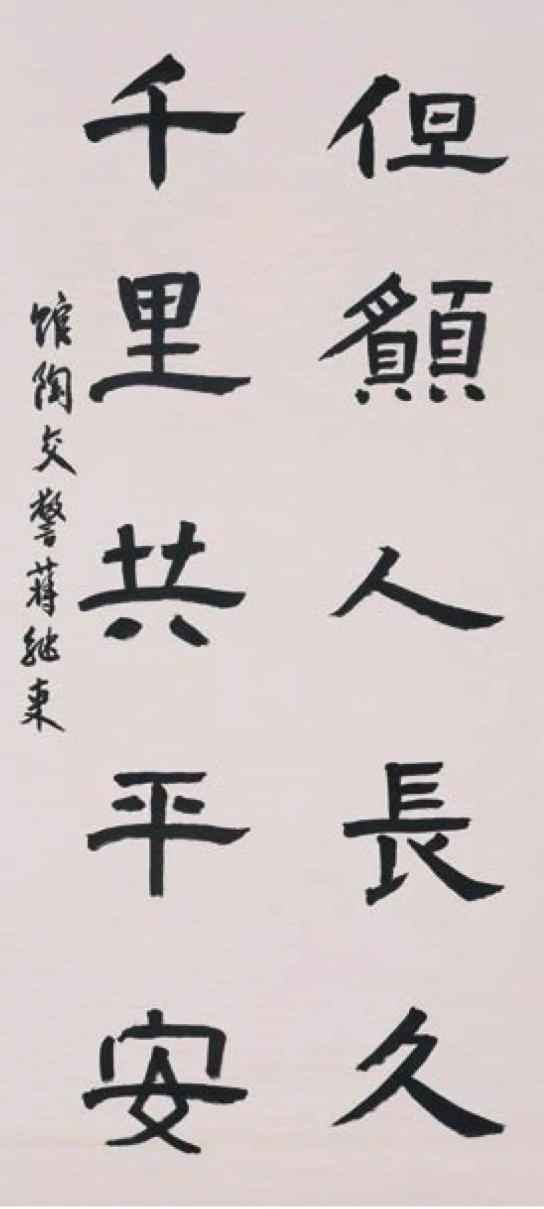 但願人長久
千里共平安
馆陶交警蒋继东